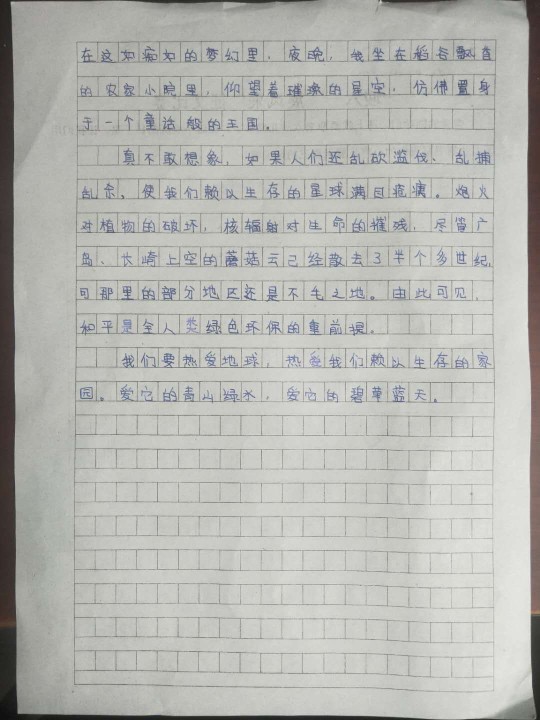 在这如痴如的梦幻里，夜晚，我坐在稻谷飘香
的农家小院里，仰望着璀璨的星空，仿佛置身
于一个童话般的王国。
真不敢想象，如果人们还乱砍滥伐、乱捕
乱杀，使我们赖以生存的星球满目疮痍。炮火
对植物的破坏，核辐射对生命的摧残，尽管广
岛、长崎上空的蘑菇云已经散去了半个多世纪，
可那里的部分地区还是不毛之地。由此可见，
和平是全人类绿色环保的重前提。
我们要热爱地球，热爱我们赖以生存的家
园。爱它的青山绿水，爱它的碧草蓝天。